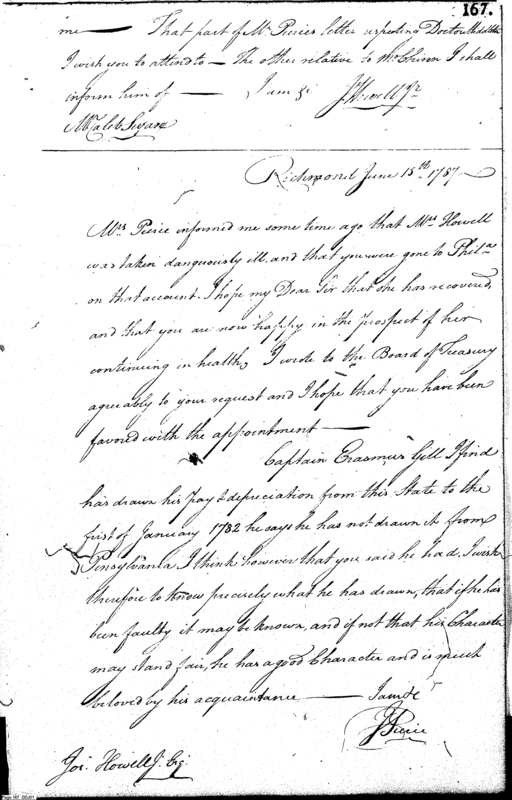 167.
me — That part of Mr. Pierces letter respecting Doctor Middleton
I wish you to attend to — The other relative to Mr. Chinn I shall
inform him of — I am &c. J Howell Jr
Mr. Caleb Swan
Richmond June 15th 1787 —
Mrs. Pierce informed me some time ago that Mrs. Howell
was taken dangerously ill, and that you were gone to Phila.
on that account. I hope my Dear Sir that she has recovered,
and that you are now happy in the prospect of her
continuing in health, I wrote to the Board of Treasury
agreeably to your request and I hope that you have been
favored with the appointment —
Captain Erasmus Gill I find
has drawn his Pay & depreciation from this State to the
first of January 1782 he says he has not drawn it from
Pensylvania I think however that you said he had. I wish
therefore to know precisely what he has drawn, that if he has
been faulty it may be known, and if not that his Character
may stand fair, he has a good Character and is much
beloved by his acquaintance — I am &c
J Pierce
Jos. Howell Jr. Esq.